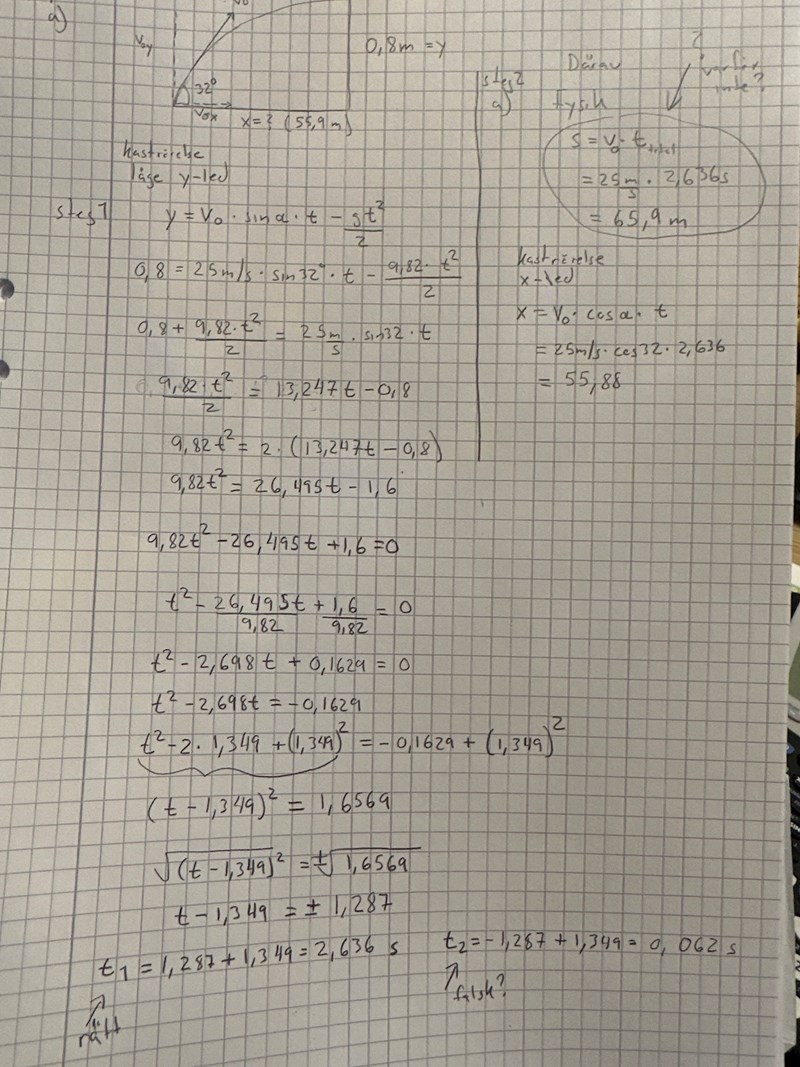 a)
V₀
V₀y
0,8m = y
32°
V₀x
x = ? (55,9m)
kaströrelse
läge y-led
steg 1
y = V₀ · sinα · t - gt²/2
0,8 = 25m/s · sin32° · t - 9,82 · t²/2
0,8 + 9,82 · t²/2 = 25m/s · sin32 · t
9,82 · t²/2 = 13,247t - 0,8
9,82t² = 2 · (13,247t - 0,8)
9,82t² = 26,495t - 1,6
9,82t² - 26,495t + 1,6 = 0
t² - 26,495t/9,82 + 1,6/9,82 = 0
t² - 2,698t + 0,1629 = 0
t² - 2,698t = -0,1629
t² - 2 · 1,349 + (1,349)² = -0,1629 + (1,349)²
(t - 1,349)² = 1,6569
√(t - 1,349)² = ±√1,6569
t - 1,349 = ± 1,287
t₁ = 1,287 + 1,349 = 2,636 s
rätt
t₂ = -1,287 + 1,349 = 0,062 s
falsk?
steg 2
a)
Fysik
?
varför
inte?
s = v₀ · t
= 25m/s · 2,636s
= 65,9 m
kaströrelse
x-led
x = V₀ · cosα · t
= 25m/s · cos32 · 2,636
= 55,88